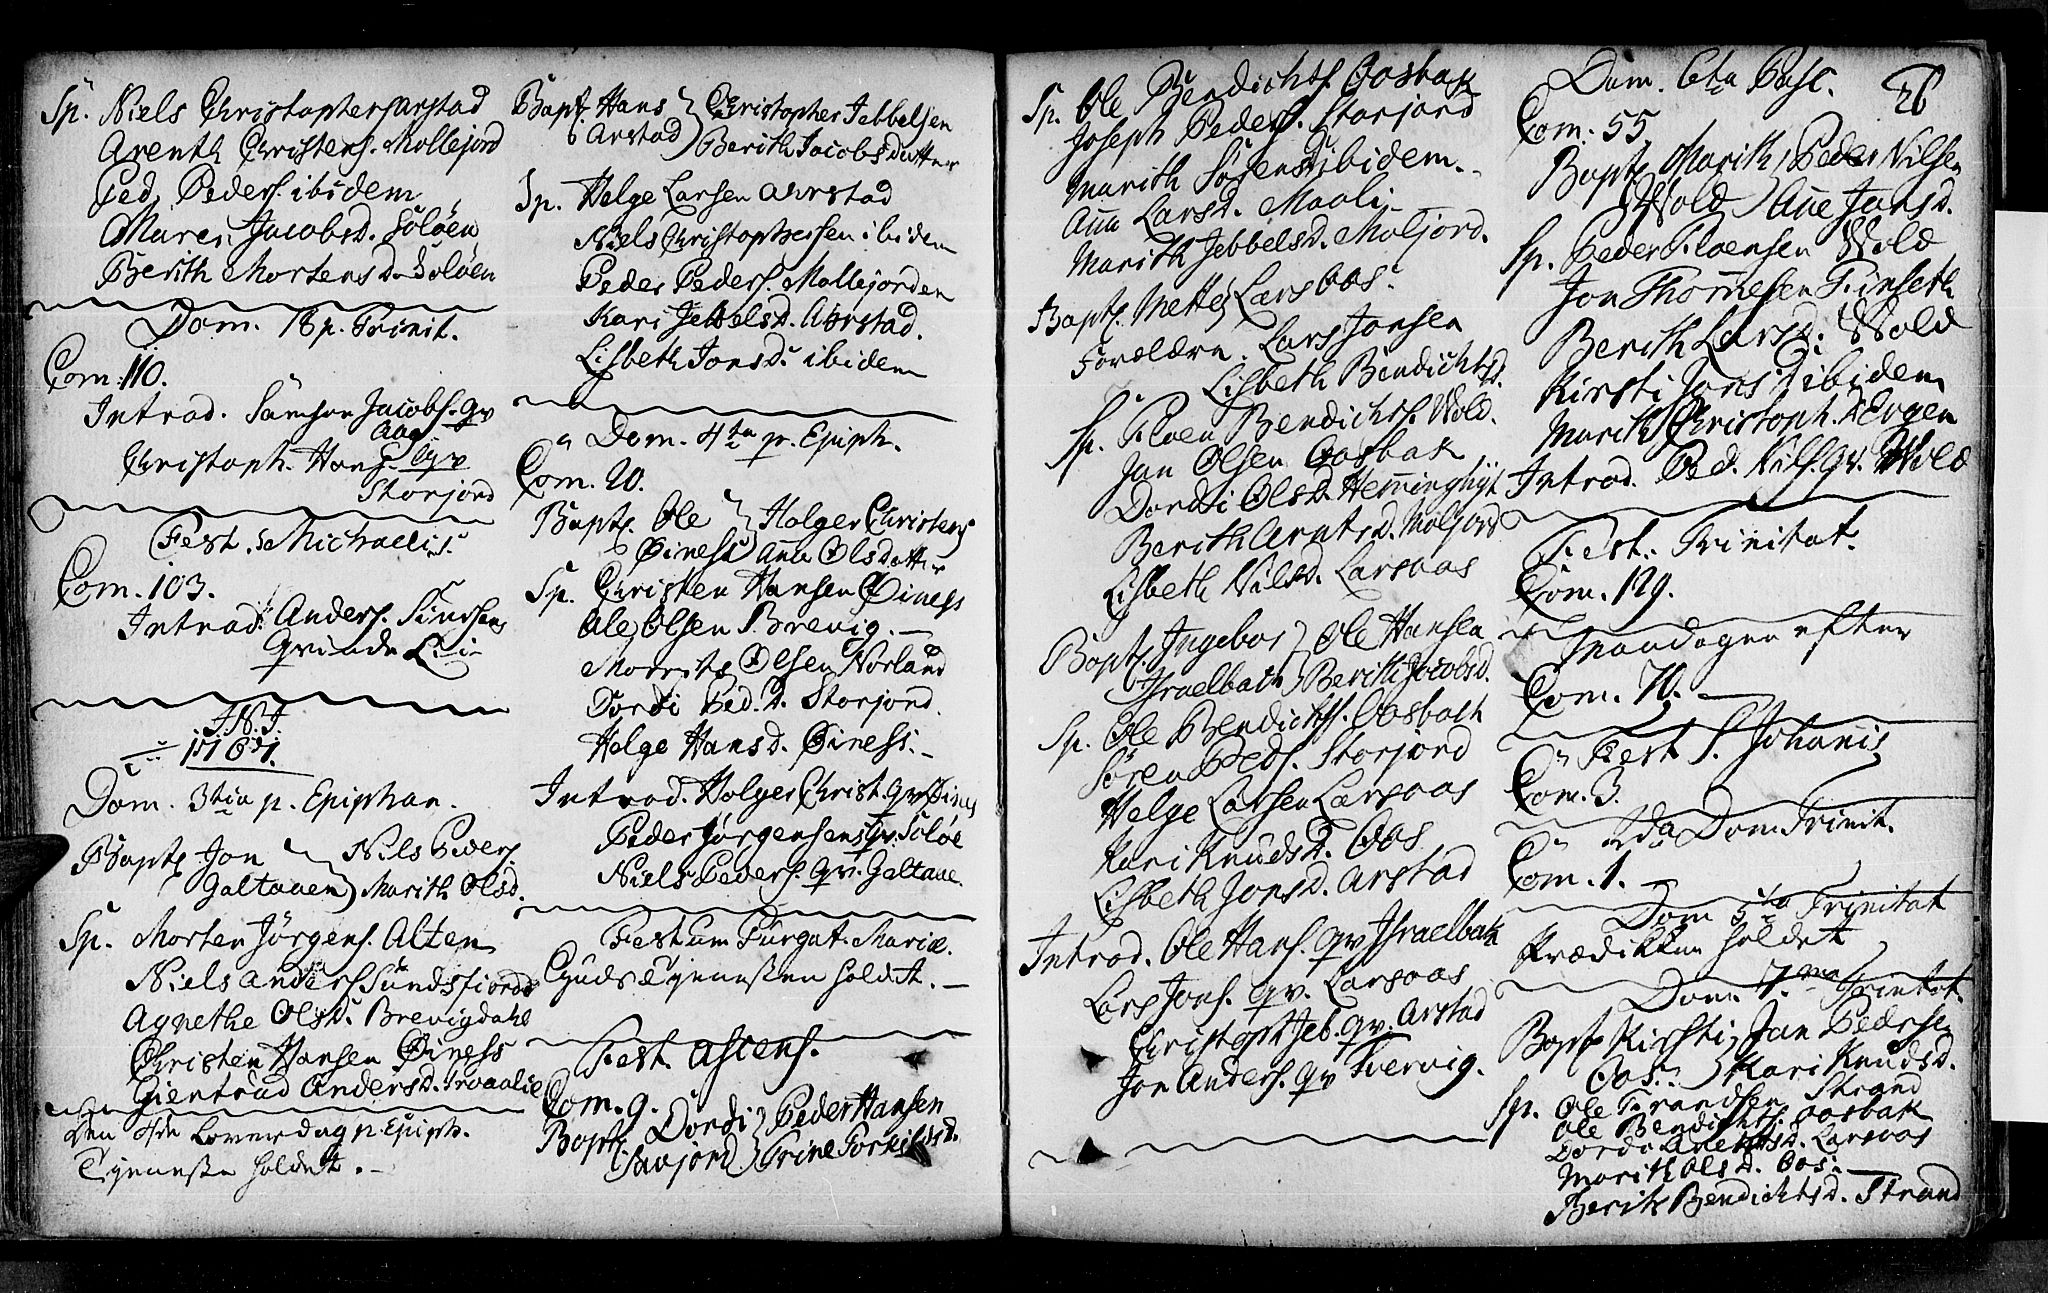 Sp. Niels Christophers Arstad
Arenth Christens. Mollejord
Ped. Peders. ibidem
Maren Jacobsd. Soløen
Berith Mortensd. Soløen
Dom. 18 p. Trinit.
Com. 110.
Introd. Samson Jacobs. qv
Aag
Christoph. Hans. qv
Storjord
Fest. Michaelis.
Com. 103.
Introd. Anders. Simesens
Qvinde Lii
J.N.J.
1767.
Dom. 3tia p. Epiphan.
Bapt. Jon } Niels Peders.
Galtauen } Marith Olsd.
Sp. Morten Jørgens. Alten
Niels Anders. Sundsfiord
Agnethe Olsd. Brevigdahl
Christen Hansen Øiness
Giertrud Andersd.
Den 4de Løverdag p. Epiph.
Tjenesten holdet.
Bapt. Hans } Christopher Jebbelsen
Arstad } Berith Jacobsdatter
Sp. Helge Larsen Ahrstad
Niels Christophersen ibidem
Peder Peders. Mollejorden
Kari Jebbelsd. Ahrstad.
Lisbeth Jonsd. ibidem
Dom. 4ta p. Epiph.
Com. 20.
Bapt. Ole } Holger Christens
Øiness } Ana Olsdatter
Sp. Christen Hansen Øiness
Ole Olsen Brevig.
Morrits Olsen Norland
Dordi Ped. D. Storjord.
Helge Hansd. Øiness.
Introd. Holger Christ. qv Øines
Peder Jørgensens qv. Soløe
Niels Peders. qv. Galtaue.
Festum Purgat. Mariæ.
Guds Tjenesten holdet.
Fest. Ascens.
Com. 9.
Bapt. Dordi } Peder Hansen
Savjord } Trine Torkildsd.
Sp. Ole Bendichts. Oosbak
Joseph Peders. Storjord
Marith Sørensd. ibidem
Ana Larsd. Moali
Marith Jebbelsd. Moljord.
Bapt. Mette, Larsoos.
Forældre. Lars Jonsen
Lisbeth Bendichtsd.
Sp. Floen Bendichts. Wold.
Jan Olsen Oosbak
Dordi Olsd. Hemminghyt
Berith Arntsd. Moljord
Lisbeth Nilsd. Larsoos
Bapt. Ingebor } Ole Hansen
Israelbach } Berith Jacobsd.
Sp. Ole Bendichts. Oosbach
Søren Peds. Storjord
Helge Larsen Larsoos
Kari Knudsd. Oos
Lisbeth Jonsd. Arstad
Introd. Ole Hans. qv Israelbak
Lars Jons. qv. Larsoos
Christoph Jeb. qv. Arstad
Jon Anders. qv Tvervig.
26
Dom. 6ta Pasc.
Com. 55
Bapt. Marith } Peder Nilsen
Wold } Ane Jansd.
Sp. Peder Floensen Wold
Jon Thomesen Finseth
Berith Larsd. Wold
Kirsti Jonsd. ibidem
Marith Christoph. d. Evgen
Introd. Ped. Nils. qv. Wold
Fest. Trinitat.
Com. 129.
Mandagen efter
Com. 70.
Fest S. Johanis
Com. 3.
2da Dom Trinit.
Com. 1.
Dom 5ta Trinitat
Prædikken holdet
Dom. 7.ma Trinitat.
Bapt Kirsti, } Jan Pedersen
Oos. } Kari Knudsd.
Sp. Ole Frandsen Strand
Ole Bendichts. Oosbak
Dordi Arentsd. Larsoos
Marith Olsd. Oos.
Berit Bendichtsd. Strand